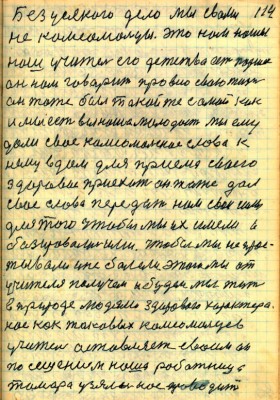 Без усякого дело мы свами 114
не комсомольцы. Это нам нашы
наш учител его детства
он нам говорит про свою жизн
он тоже был такойже самый как
и мы есть вы нашы молодост мы ему
дали свое комсомолское слова к
нему в дом для приема своего
здоровие приехат он тоже дал
свое слова передат нам свои силы
для того чтобы мы их имели и
базировались ими. чтобы мы не прос-
тывали и не болели, этого мы от
учителя получим и будем мы жит
в природе людями здорового характера.
нас как таковых комсомольцев
учител оставляет своим он
посещением наша работница
тамара узяла нас проводит